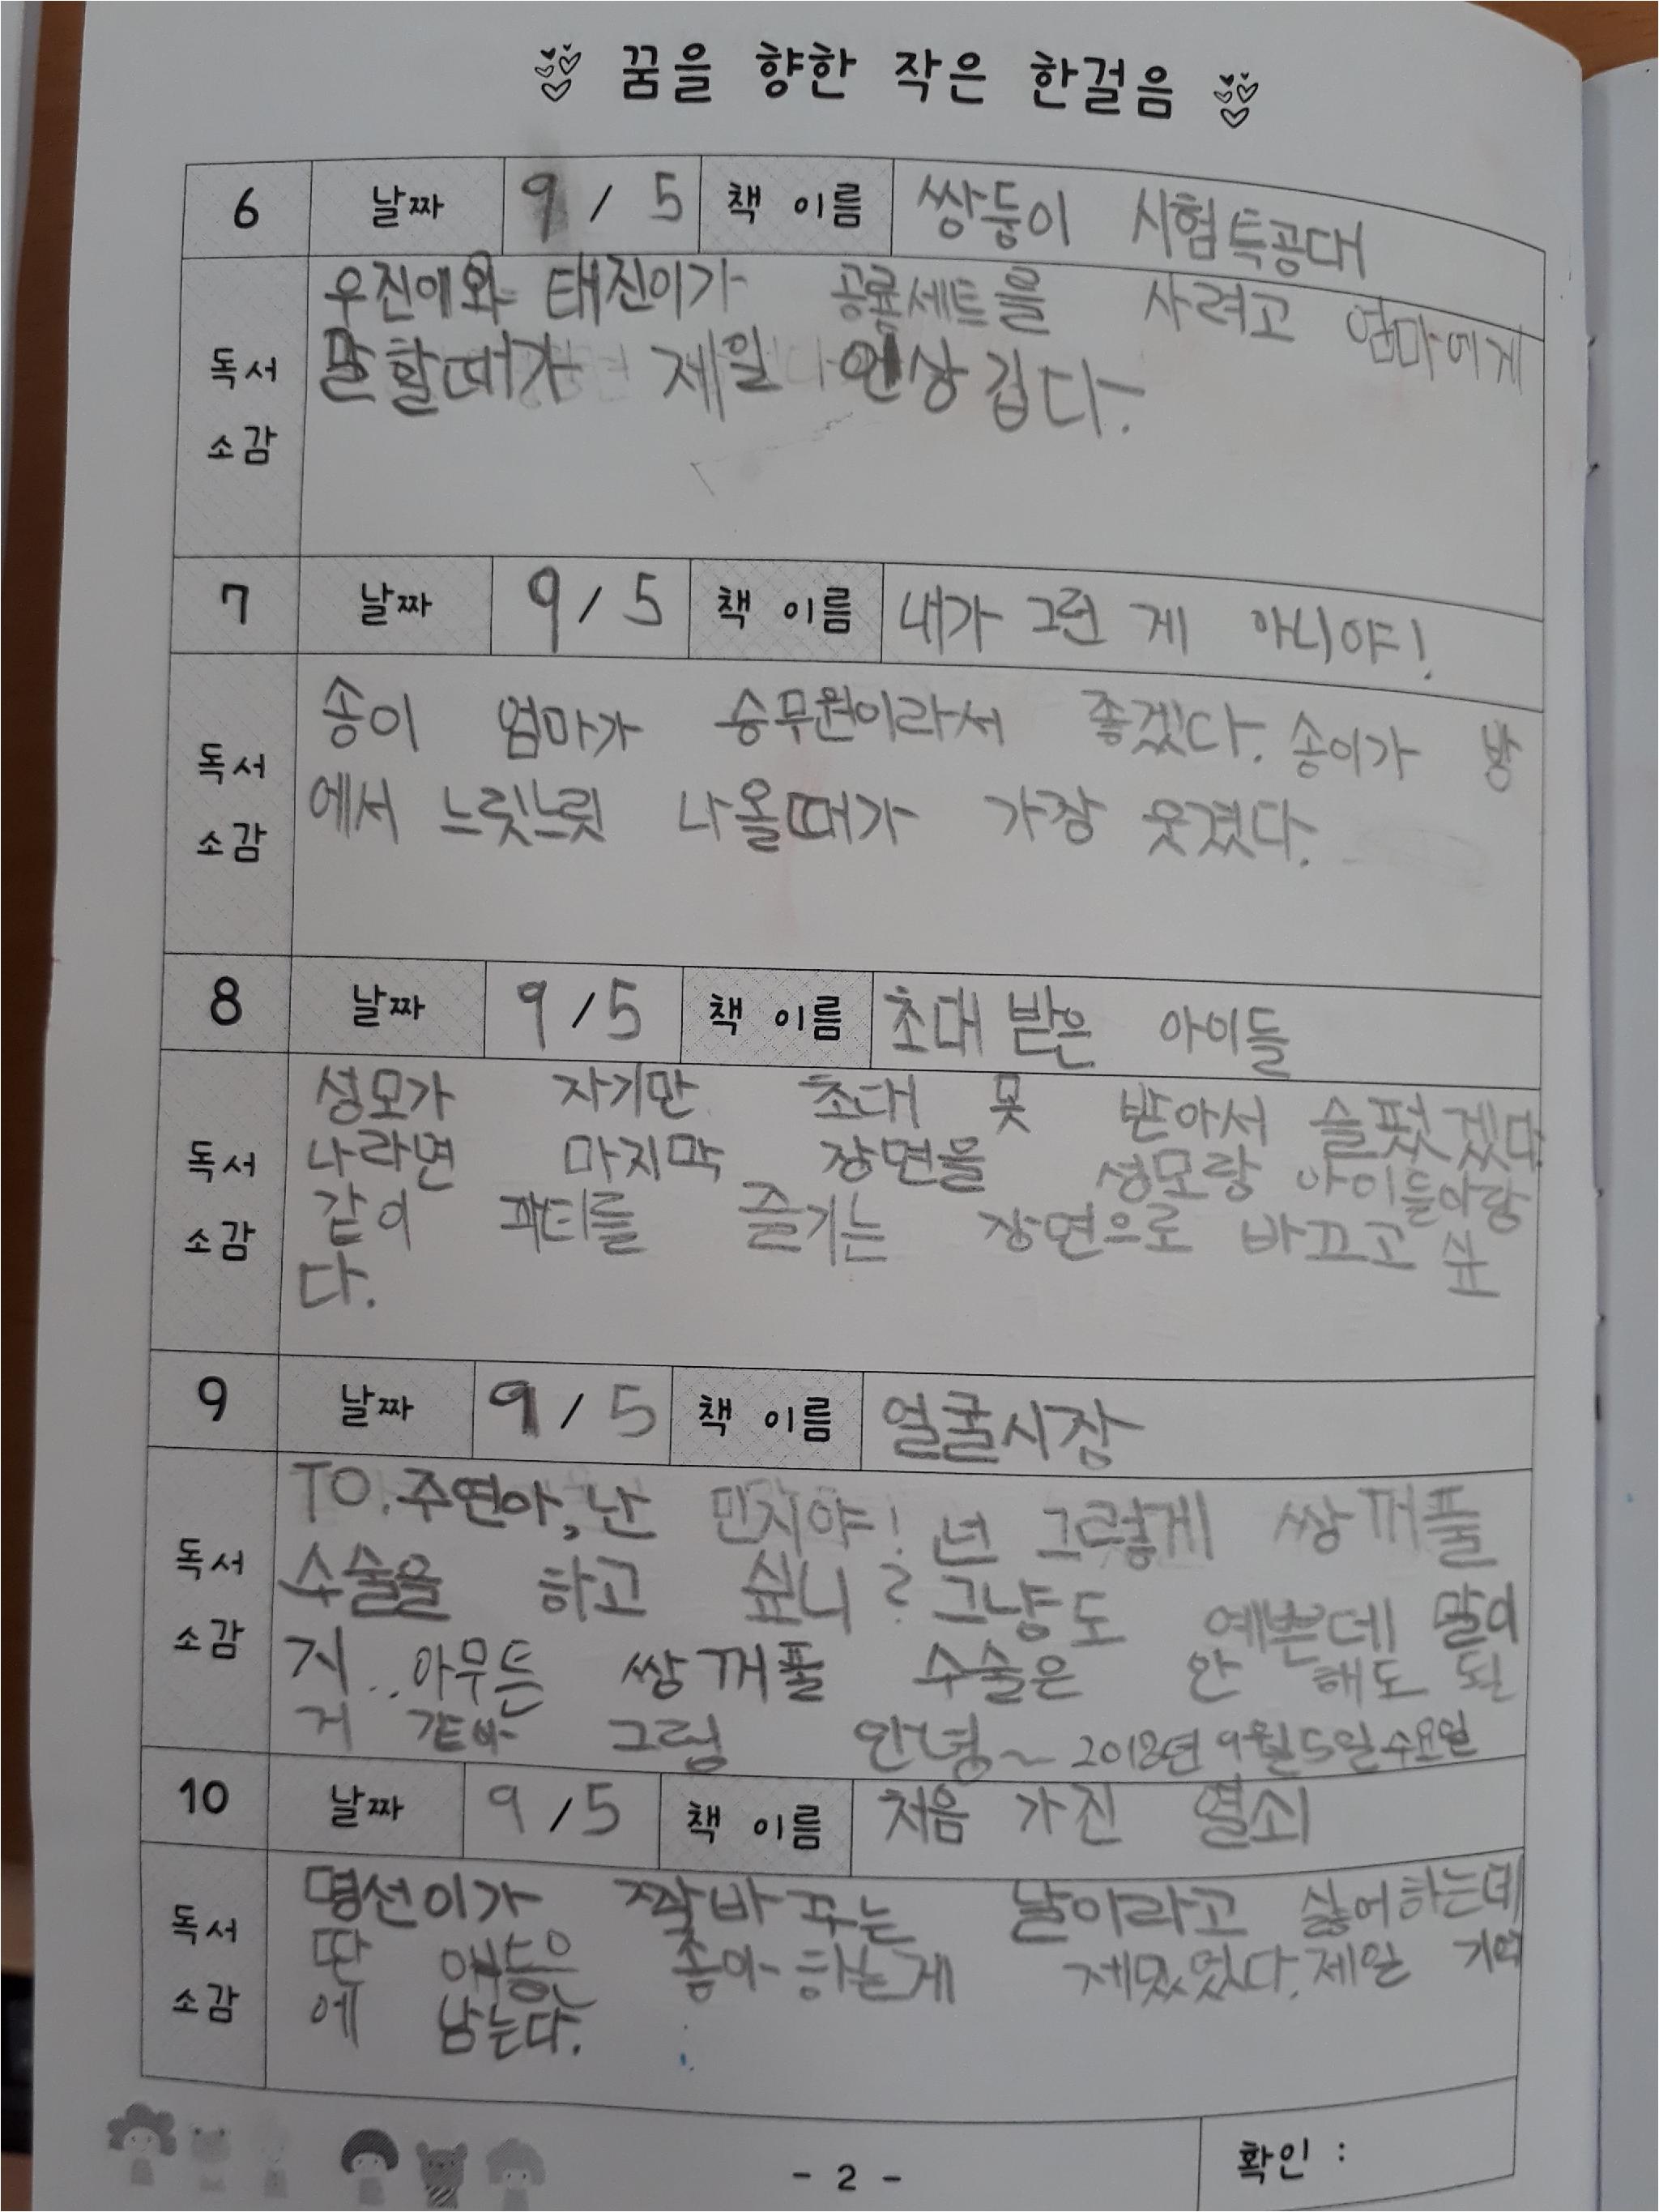 꿈을 향한 작은 한걸음
6 날짜 9 / 5 책 이름 쌍둥이 시험특공대
독서 소감
우진에와 태진이가 공룡세트를 사려고 엄마에게
말할때가 제일 인상 깁다.
7 날짜 9 / 5 책 이름 내가 그런 게 아니야!
독서 소감
송이 엄마가 승무원이라서 좋겠다. 송이가 방
에서 느릿느릿 나올때가 가장 웃겼다.
8 날짜 9 / 5 책 이름 초대 받은 아이들
독서 소감
성모가 자기만 초대 못 받아서 슬펐겠다
나라면 마지막 장면을 성모랑 아이들이랑
같이 파티를 즐기는 장면으로 바끄고 싶
다.
9 날짜 9 / 5 책 이름 얼굴시장
독서 소감
TO. 주연아, 난 민지야! 넌 그렇게 쌍꺼풀
수술을 하고 싶니? 그냥도 예쁜데 말이
지.. 아무튼 쌍꺼풀 수술은 안 해도 될
거 같아 그럼 안녕~ 2018년 9월 5일 수요일
10 날짜 9 / 5 책 이름 처음 가진 열쇠
독서 소감
명선이가 짝바꾸는 날이라고 싫어하는데
딴 애들은 좋아하는게 재밌었다. 제일 기억
에 남는다.
- 2 -
확인 :